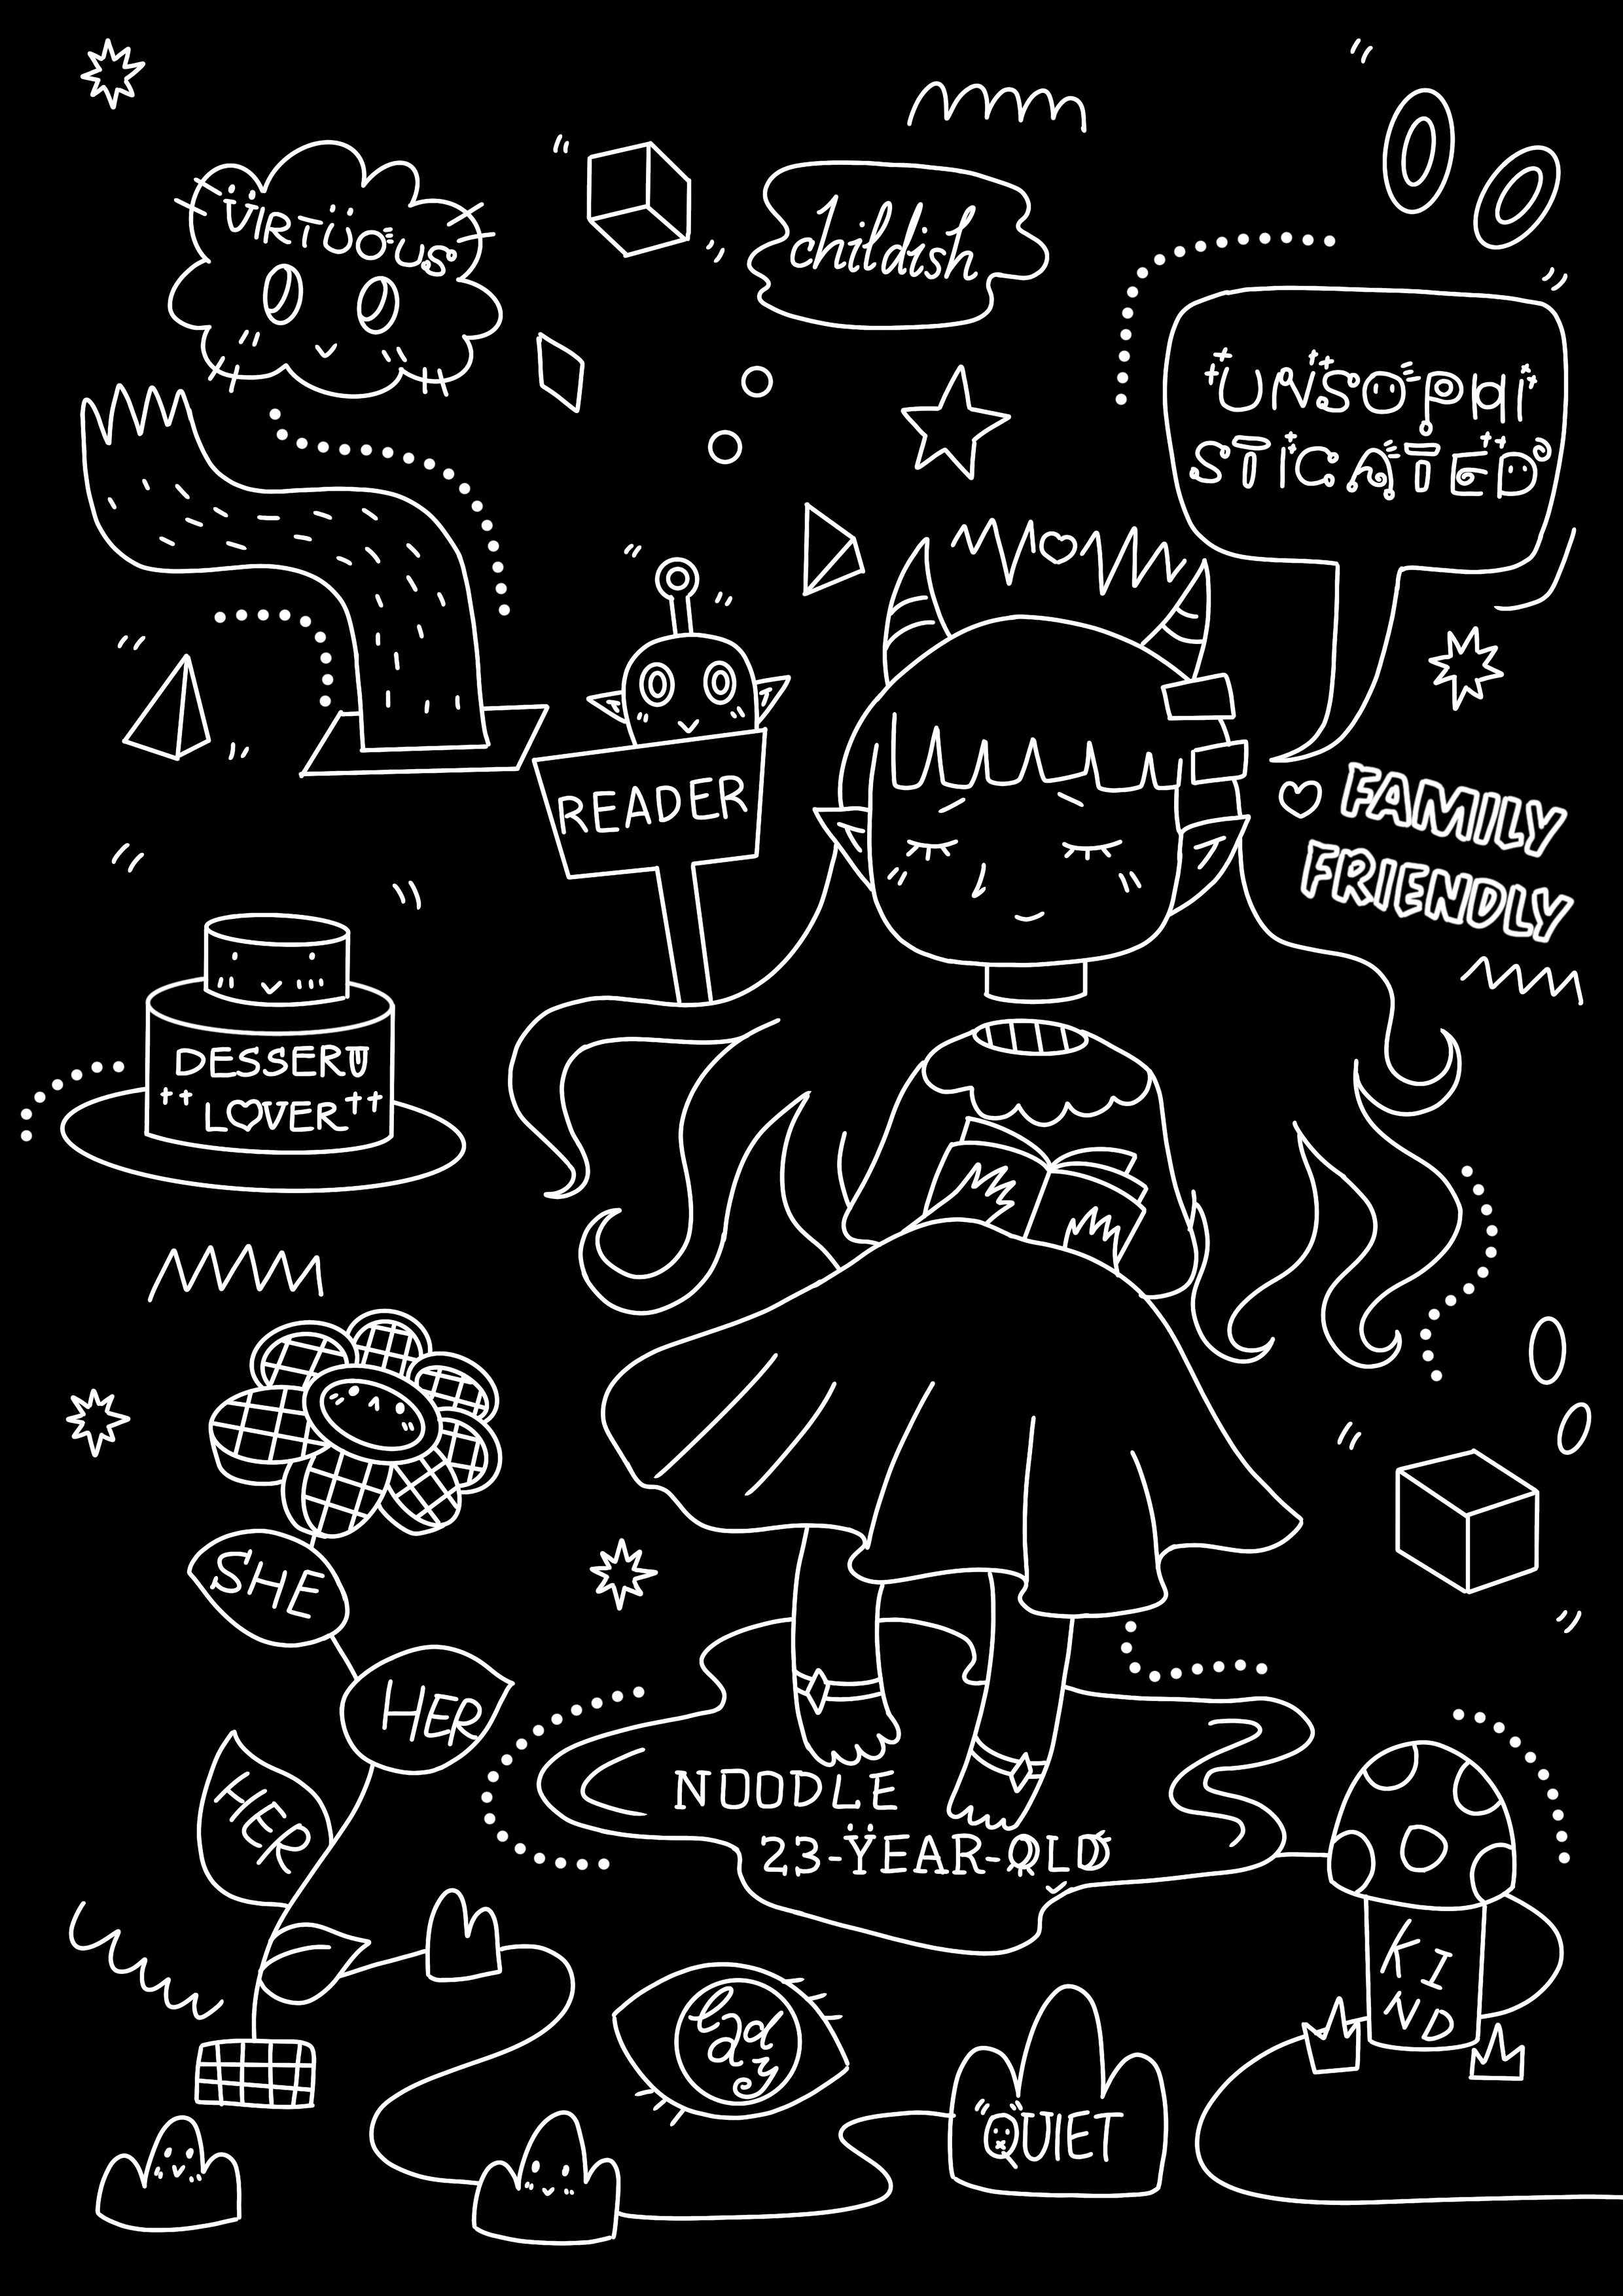 VIRTUOUS
childish
UNSOPHI
STICATED
READER
FAMILY
FRIENDLY
DESSERT
LOVER
SHE
HER
HER
NOODLE
23-YEAR-OLD
KI
ND
Lady
QUIET